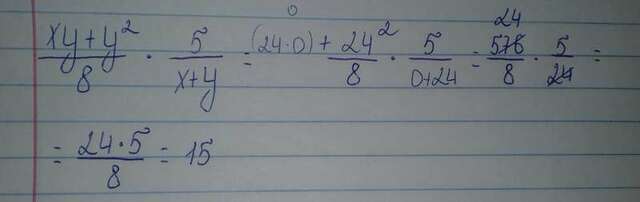 0
(xy+y²)/8 · 5/(x+y) = ((24·0)+24²)/8 · 5/(0+24) = 24 576/8 · 5/24 =
= (24·5)/8 = 15